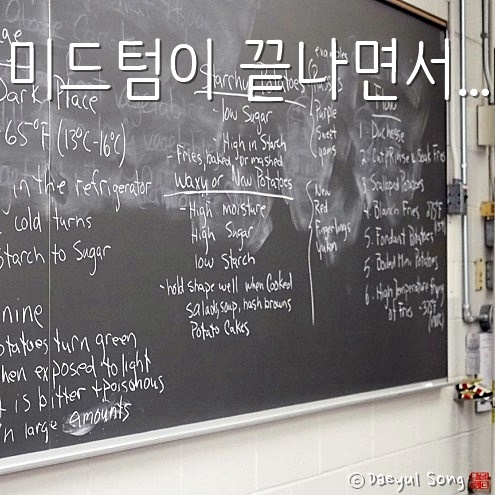 미드텀이 끝나면서...
Dark Place
65°F (13°C-16°C)
in the refrigerator
cold turns
starch to Sugar
nine
potatoes turn green
when exposed to light
is bitter + poisonous
in large amounts
Starchy Potatoes
-low Sugar
High in Starch
-Fries, baked or mashed
Waxy or New Potatoes
-High moisture
High Sugar
low Starch
-hold shape well when Cooked
salads, soup, hash browns
Potato Cakes
examples
Russets
Purple
Sweet
yams
New
Red
Fingerlings
Yukon
1. Duchesse
2. Cut, Rinse & Soak Fries
3. Scalloped Potatoes
4. Blanch Fries
5. Fondant Potatoes
5. Boiled Mini Potatoes
6. High Temperature frying
of Fries
© Daeyul Song